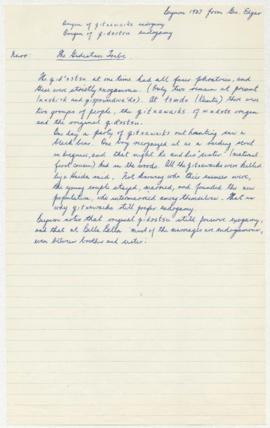 Beynon 1923 from Geo. Edgar
Origin of gitxawacks endogamy
Origin of gidostsu endogamy
Narr: The Gidestsu Tribe
The gid'ostsu at one time had all four phratries, and
these were strictly exogamous. (Only two remain at present
and gispwudwada). At (Klemtu) there were
two groups of people, the of origin
and the original gidostsu.
One day a party of out hunting saw a
black bear. One boy recognized it as a
in disguise, and that night he and his "sister" (
cousin) hid in the woods. All the were killed
by a Haida raid. Not knowing who their enemies were,
the young couple stayed, married, and founded the new
population, who intermarried among themselves. That is
why still prefer endogamy.
Beynon notes that original gidostsu still preserve exogamy,
and that at Bella Bella most of the marriages are endogamous,
even between brothers and sisters.